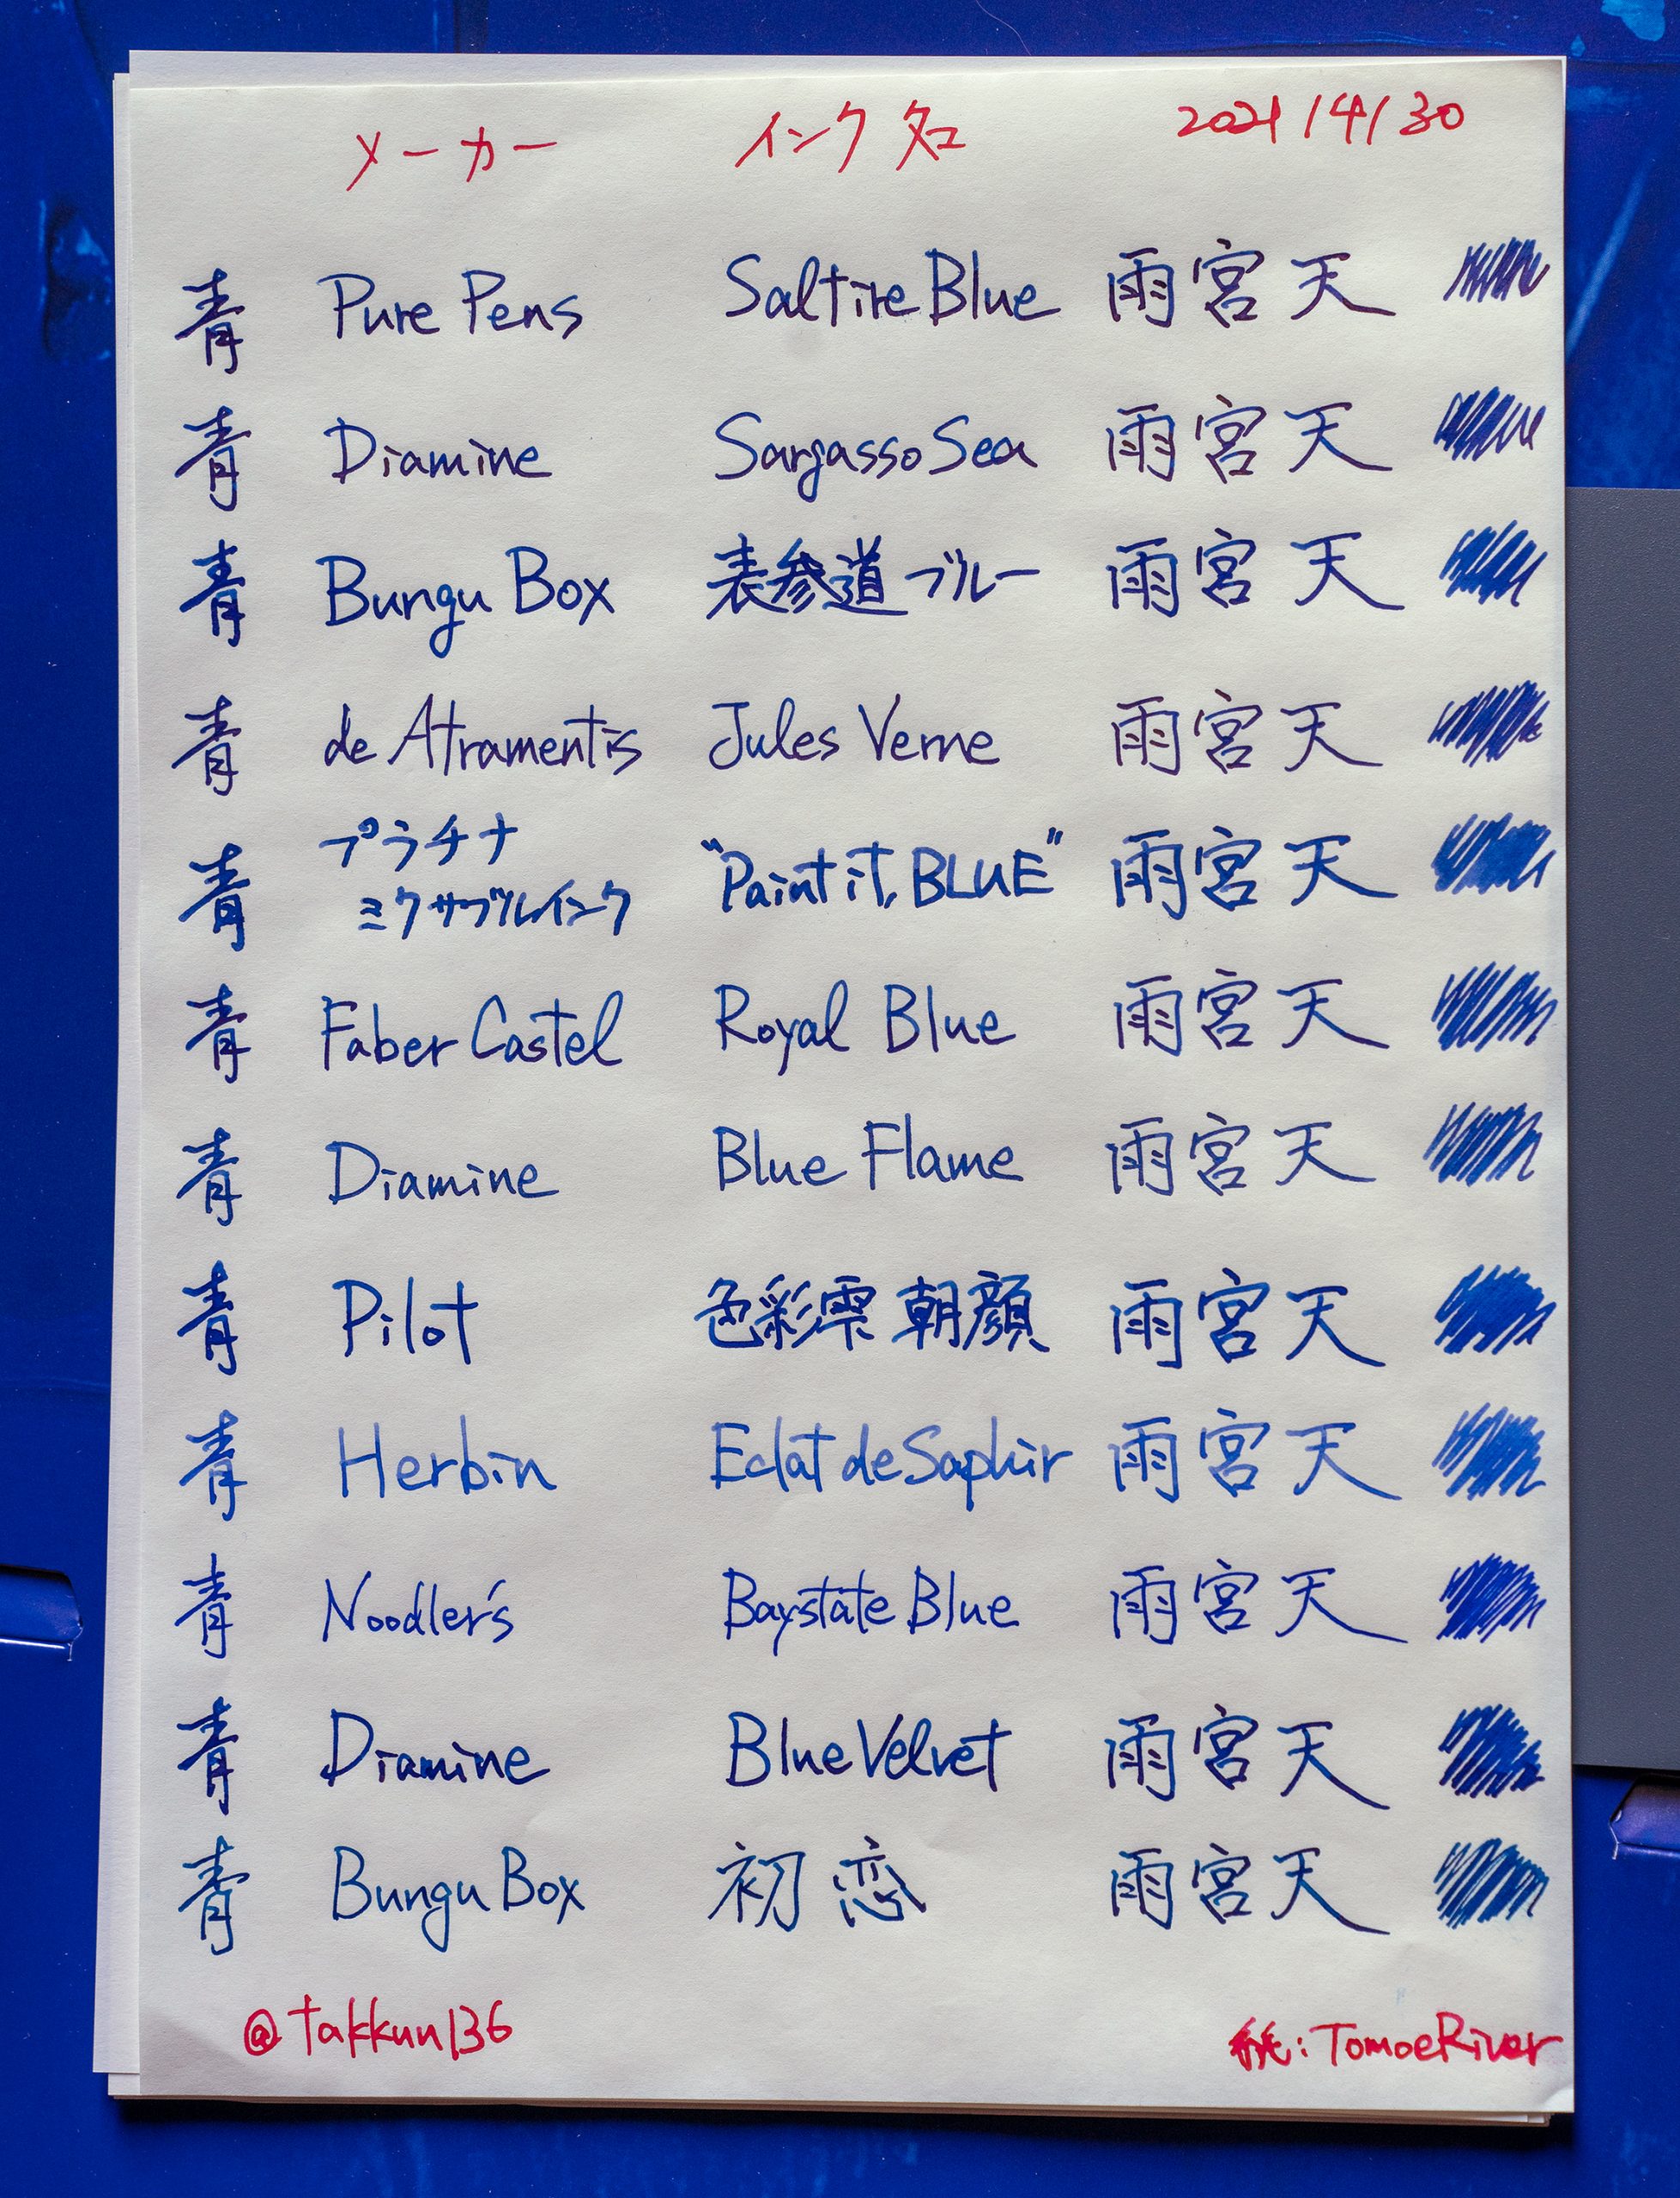 メーカー インク名 2021/4/30
青 Pure Pens Saltire Blue 雨宮天
青 Diamine Sargasso Sea 雨宮天
青 Bungu Box 表参道ブルー 雨宮天
青 de Atramentis Jules Verne 雨宮天
青 プラチナ ミクサブルインク "Paint it, BLUE" 雨宮天
青 Faber Castel Royal Blue 雨宮天
青 Diamine Blue Flame 雨宮天
青 Pilot 色彩雫 朝顔 雨宮天
青 Herbin Eclat de Saphir 雨宮天
青 Noodler's Baystate Blue 雨宮天
青 Diamine Blue Velvet 雨宮天
青 Bungu Box 初恋 雨宮天
@takkun136 紙:TomoeRiver